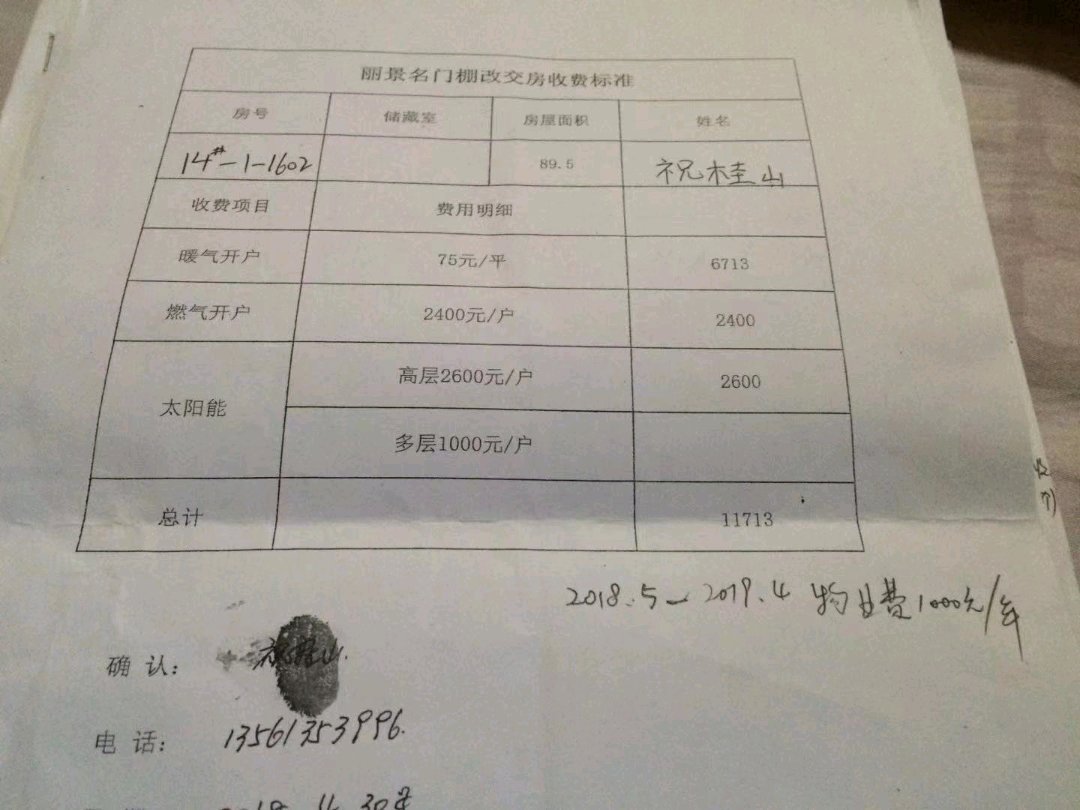 丽景名门棚改交房收费标准
房号 储藏室 房屋面积 姓名
14#-1-1602 89.5 祝桂山
收费项目 费用明细
暖气开户 75元/平 6713
燃气开户 2400元/户 2400
太阳能 高层2600元/户 2600
多层1000元/户
总计 11713
2018.5-2019.4 物业费1000元/年
确 认: 祝桂山
电 话: 13561353996